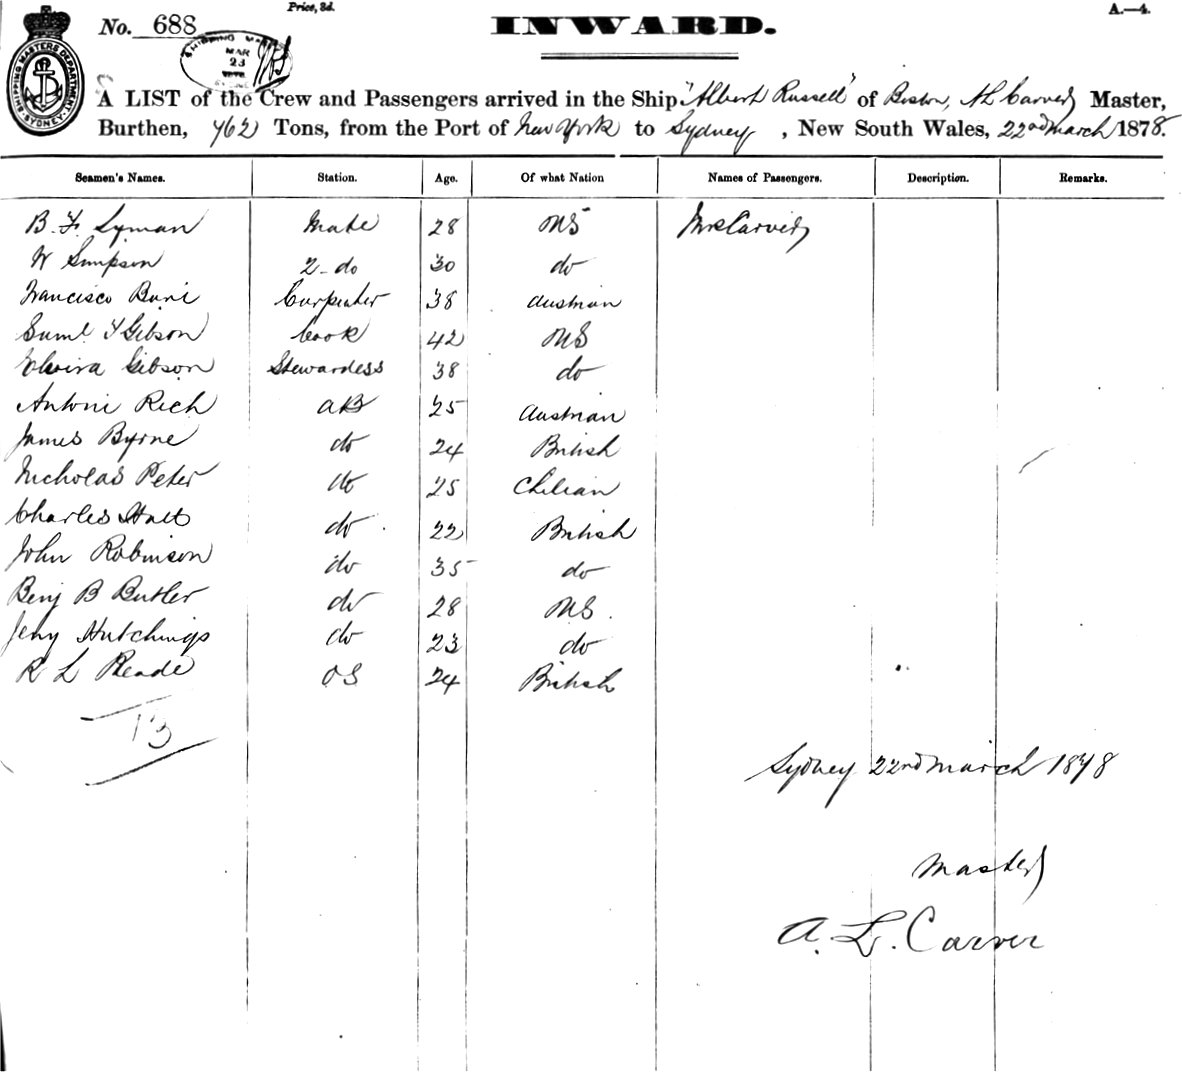 Price, 3d.
A.—4.
No. 688
INWARD.
SHIPPING MASTERS DEPARTMENT
SYDNEY
MAR
23
A LIST of the Crew and Passengers arrived in the Ship "Albert Russell" of Boston, A L Carver Master,
Burthen, 762 Tons, from the Port of New York to Sydney, New South Wales, 22nd March 1878.
Seamen's Names. Station. Age. Of what Nation Names of Passengers. Description. Remarks.
B. F. Lyman Mate 28 US Mrs Carver
W Simpson 2 do 30 do
Francisco 38 Carpenter Austrian
Saml Gibson Cook 42 US
Elvira Gibson Stewardess 38 do
Antoni Rich AB 25 Austrian
James Byrne do 24 British
Nicholas Peter do 25 Chilian
Charles do 22 British
John Robinson do 35 do
Benj B Butler do 28 US.
Hutchings do 23 do
R L Reade OS 24 British
13
Sydney 22nd March 1878
Master
A. L. Carver